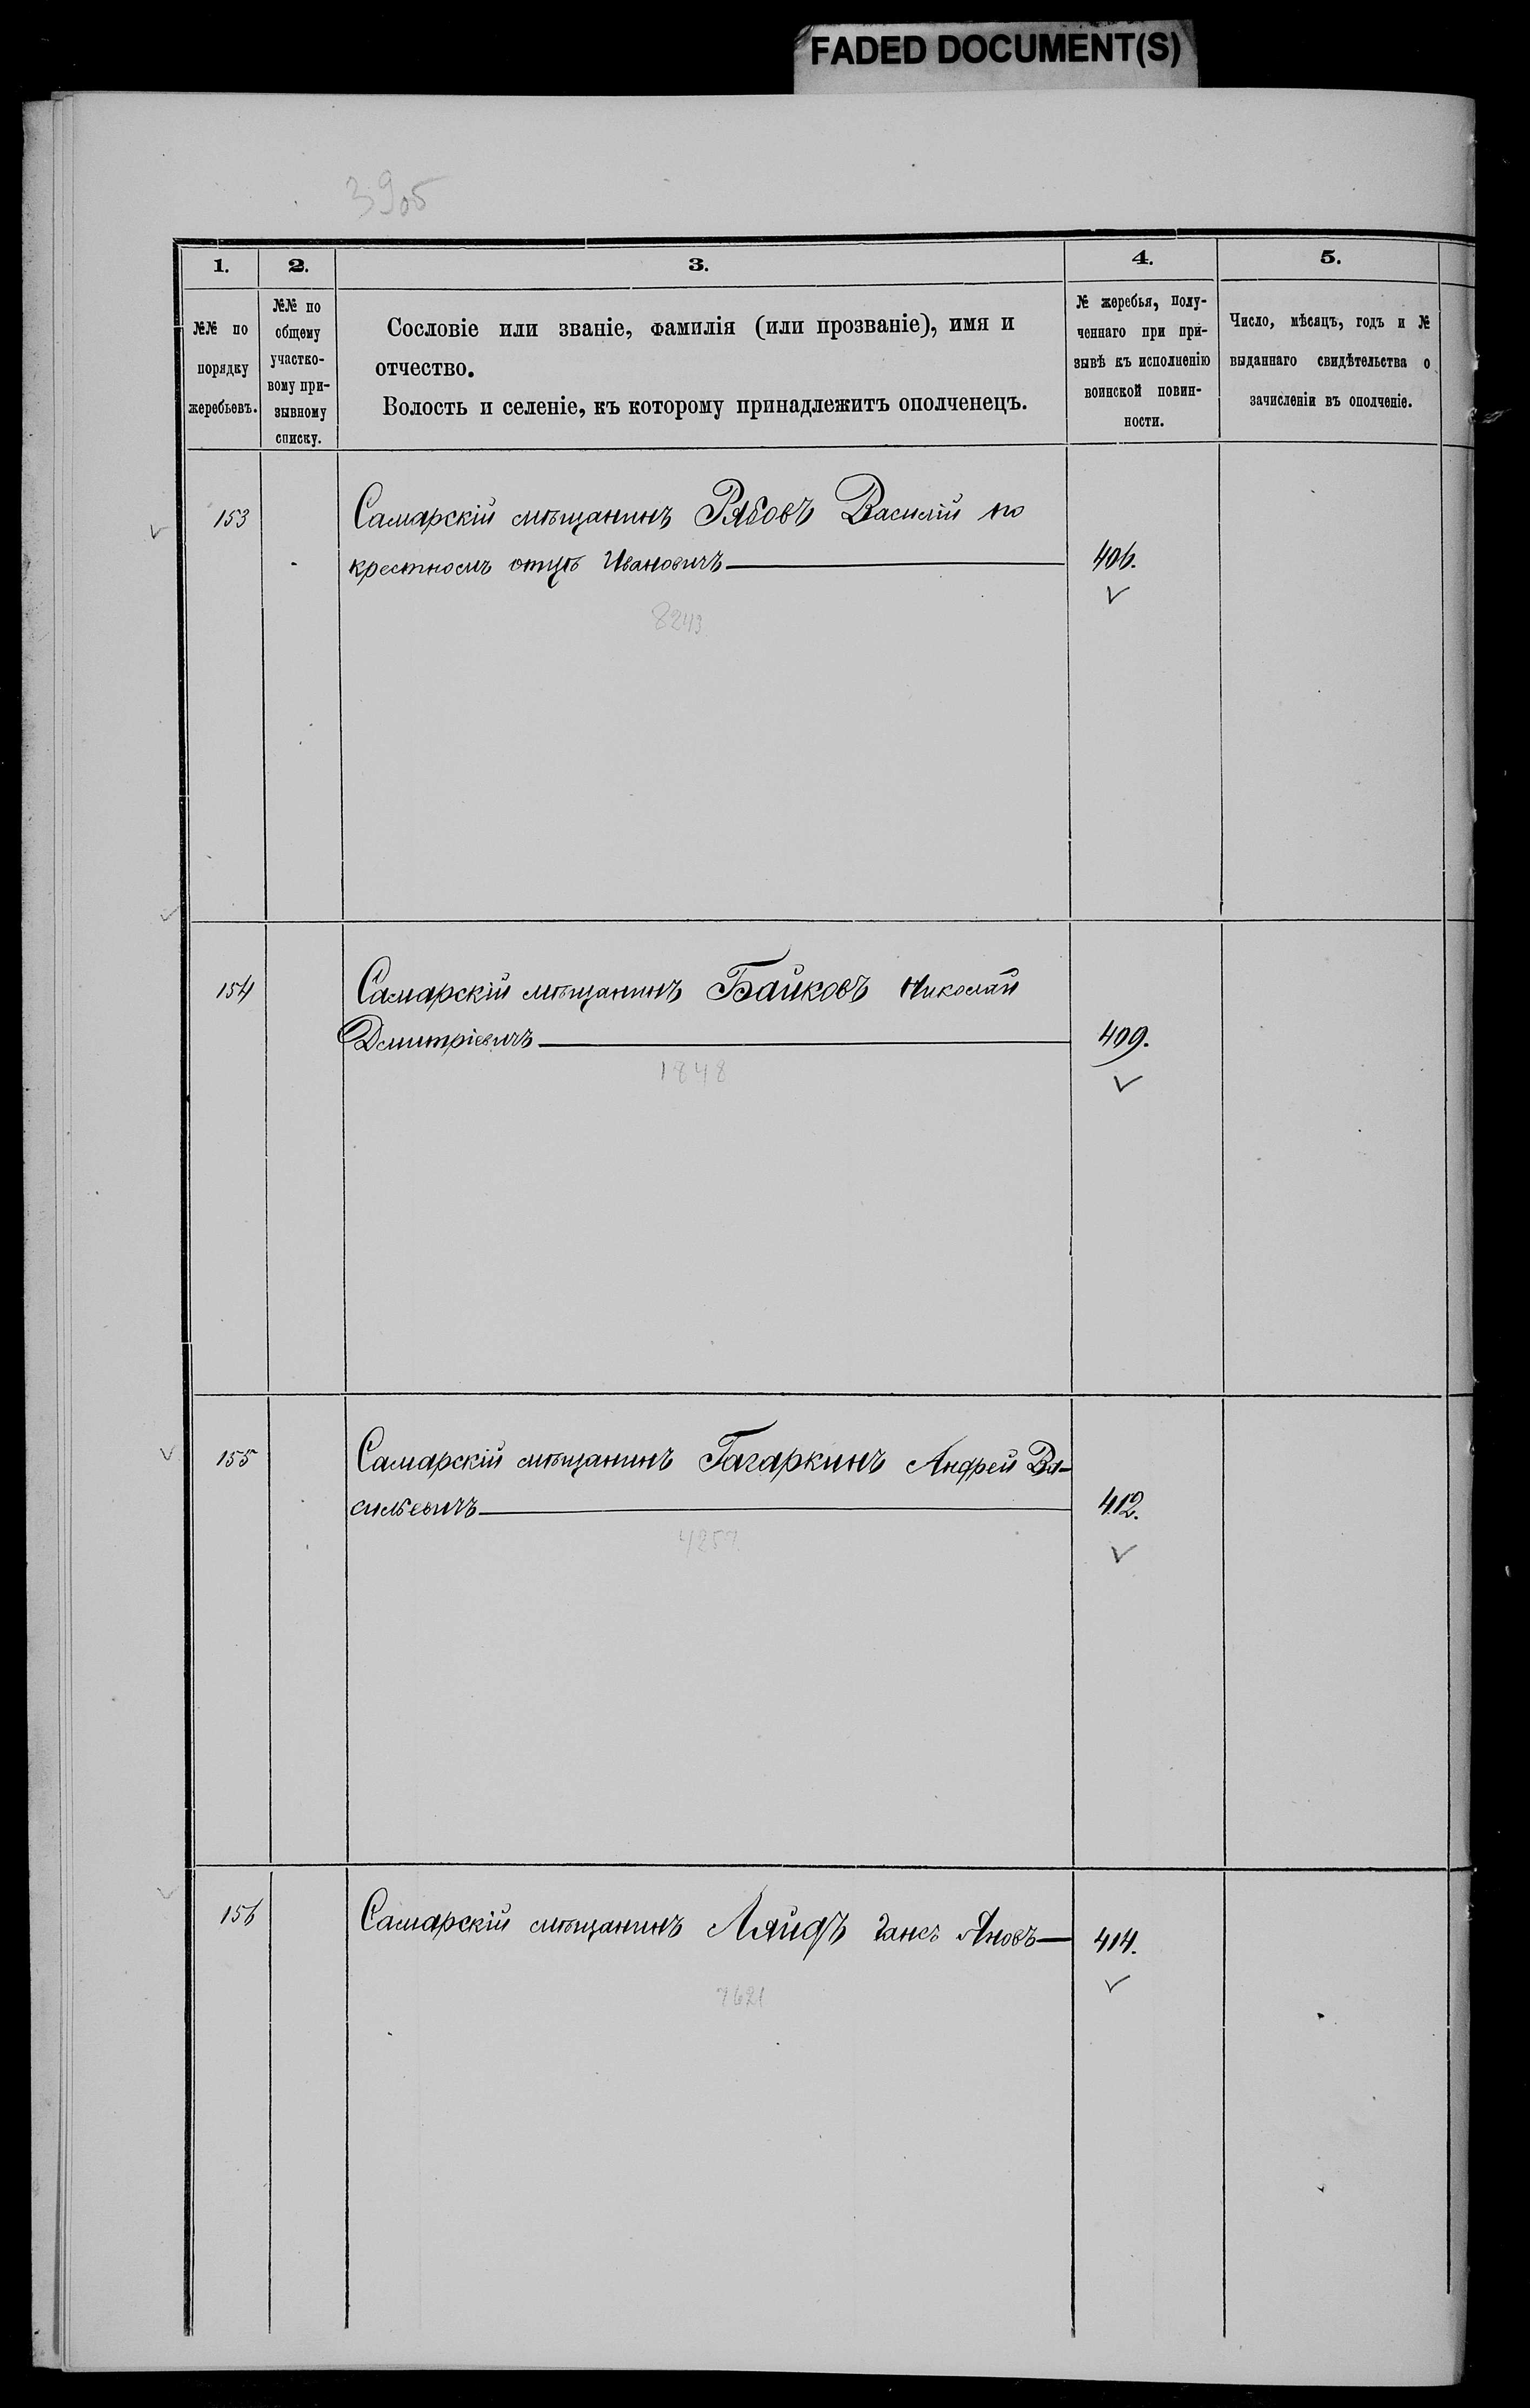 FADED DOCUMENT(S)
3905
1. 2. 3. 4. 5.
№№ по порядку жеребьевъ.
№№ по общему участко-
вому при-
зывному
списку.
Сословіе или званіе, фамилія (или прозваніе), имя и
отчество.
Волость и селеніе, къ которому принадлежитъ ополченецъ.
№ жеребья, полу-
ченнаго при при-
зывѣ къ исполненію
воинской повин-
ности.
Число, мѣсяцъ, годъ и №
выданнаго свидѣтельства о
зачисленіи въ ополченіе.
153 Самарскій мѣщанинъ Рябовъ Василій по
крестномъ отцѣ Ивановичъ 406.
8243
154 Самарскій мѣщанинъ Байковъ Николай
Дмитріевичъ 409.
1848
155 Самарскій мѣщанинъ Гагаркинъ Андрей Ва-
сильевичъ 412.
4257
156 Самарскій мѣщанинъ Ляйдъ Гансъ Яновъ 414.
7621